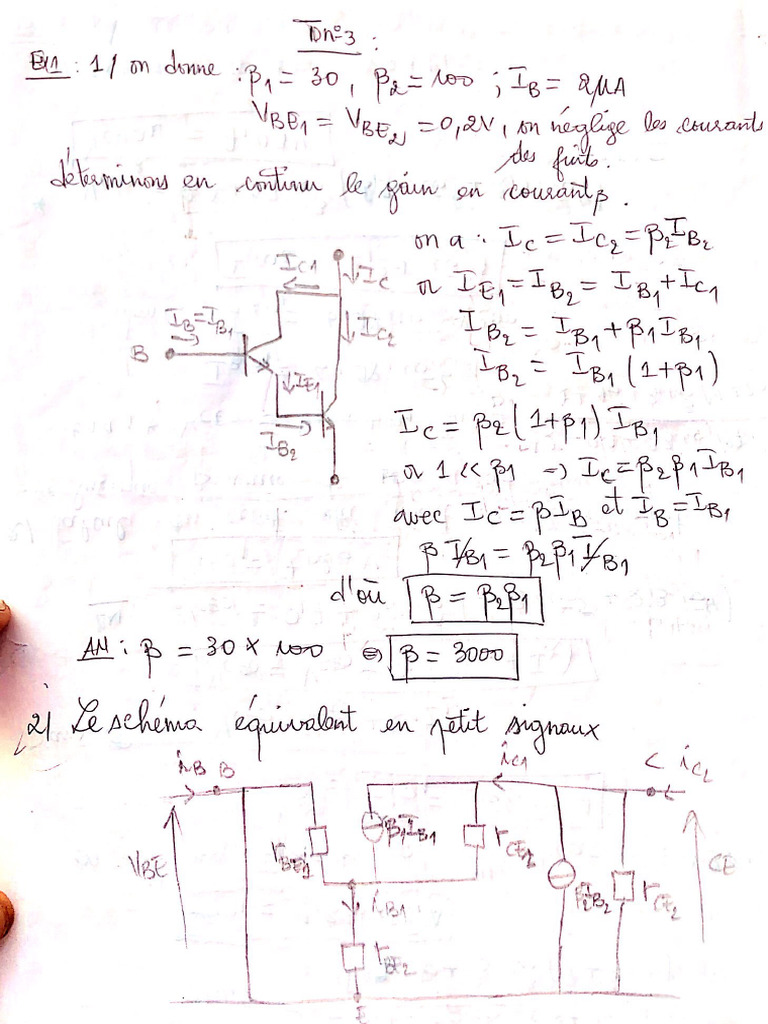 TD n°3 :
Ex1 : 1/ on donne : β1 = 30, β2 = 100 ; IB = 2μA
VBE1 = VBE2 = 0,2V, on néglige les courants
des fuits.
déterminons en continu le gain en courant β.
on a : IC = IC2 = β2IB2
or IE1 = IB2 = IB1 + IC1
IB2 = IB1 + β1IB1
IB2 = IB1 (1+β1)
IC = β2(1+β1) IB1
or 1 << β1 => IC = β2β1IB1
avec IC = βIB et IB = IB1
β IB1 = β2β1 IB1
d'où β = β2β1
IC1
IC
IB=IB1
IC2
B
IE1
IB2
AN : β = 30 × 100 => β = 3000
2/ Le schéma équivalent en petit signaux
iB B
iC1
C iC2
VBE
rBE1
β1IB1
rCE1
β2IB2
rCE2
CE
iB1
rBE2
E